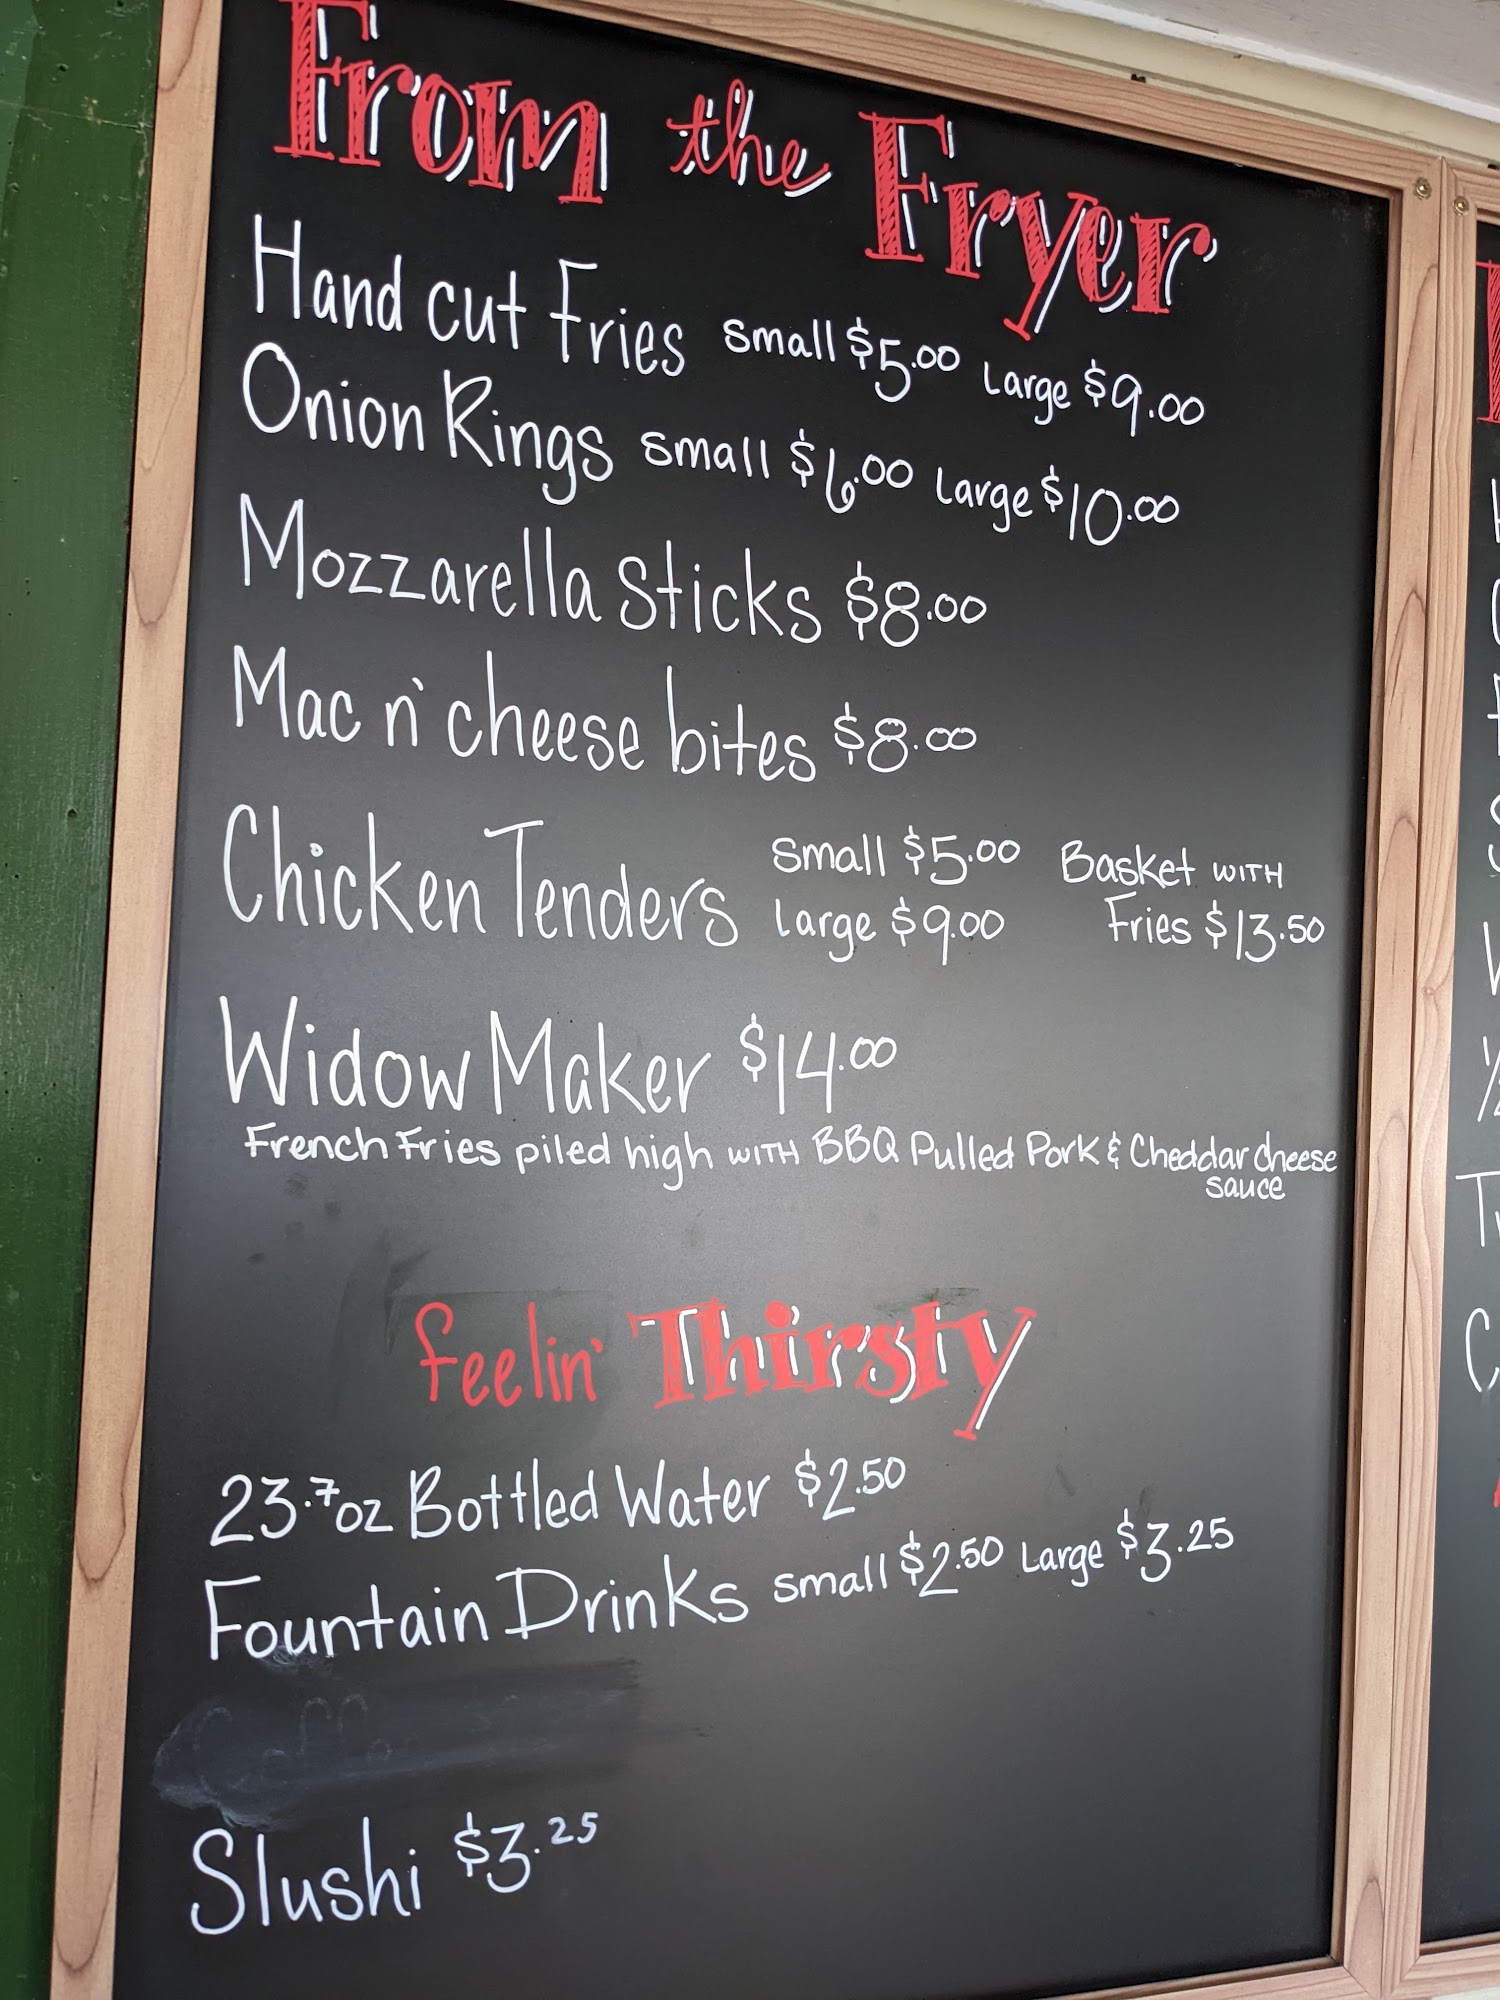 From the Fryer
Hand cut Fries small $5.00 Large $9.00
Onion Rings small $6.00 Large $10.00
Mozzarella Sticks $8.00
Mac n' cheese bites $8.00
Chicken Tenders small $5.00 Basket WITH
large $9.00 Fries $13.50
Widow Maker $14.00
French Fries piled high WITH BBQ Pulled Pork & Cheddar cheese
sauce
feelin' Thirsty
23.7oz Bottled Water $2.50
Fountain Drinks small $2.50 Large $3.25
Slushi $3.25